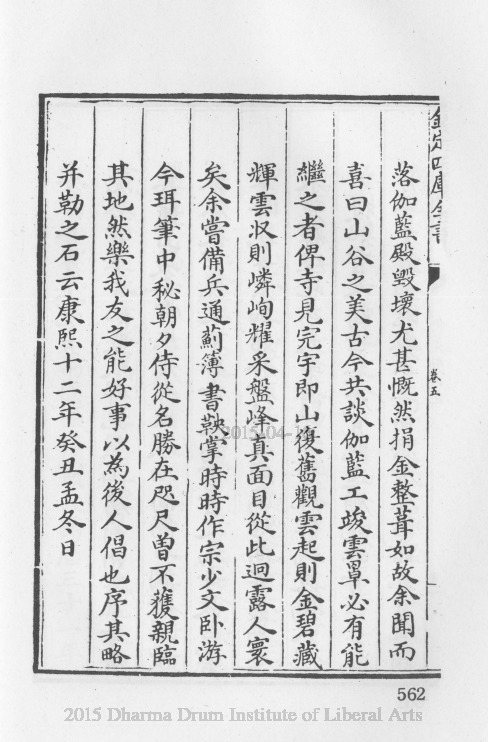 欽定四庫全書
卷五
落伽藍殿毀壞尤甚慨然捐金整葺如故余聞而
喜曰山谷之美古今共談伽藍工竣雲罩必有能
繼之者俾寺見完宇即山復舊觀雲起則金碧藏
輝雲收則嶙峋耀采盤峰真面目從此迥露人寰
矣余嘗備兵通薊簿書鞅掌時時作宗少文卧游
今珥筆中秘朝夕侍從名勝在咫尺曾不獲親臨
其地然樂我友之能好事以為後人倡也序其略
并勒之石云康熙十二年癸丑孟冬日
562
2015 Dharma Drum Institute of Liberal Arts